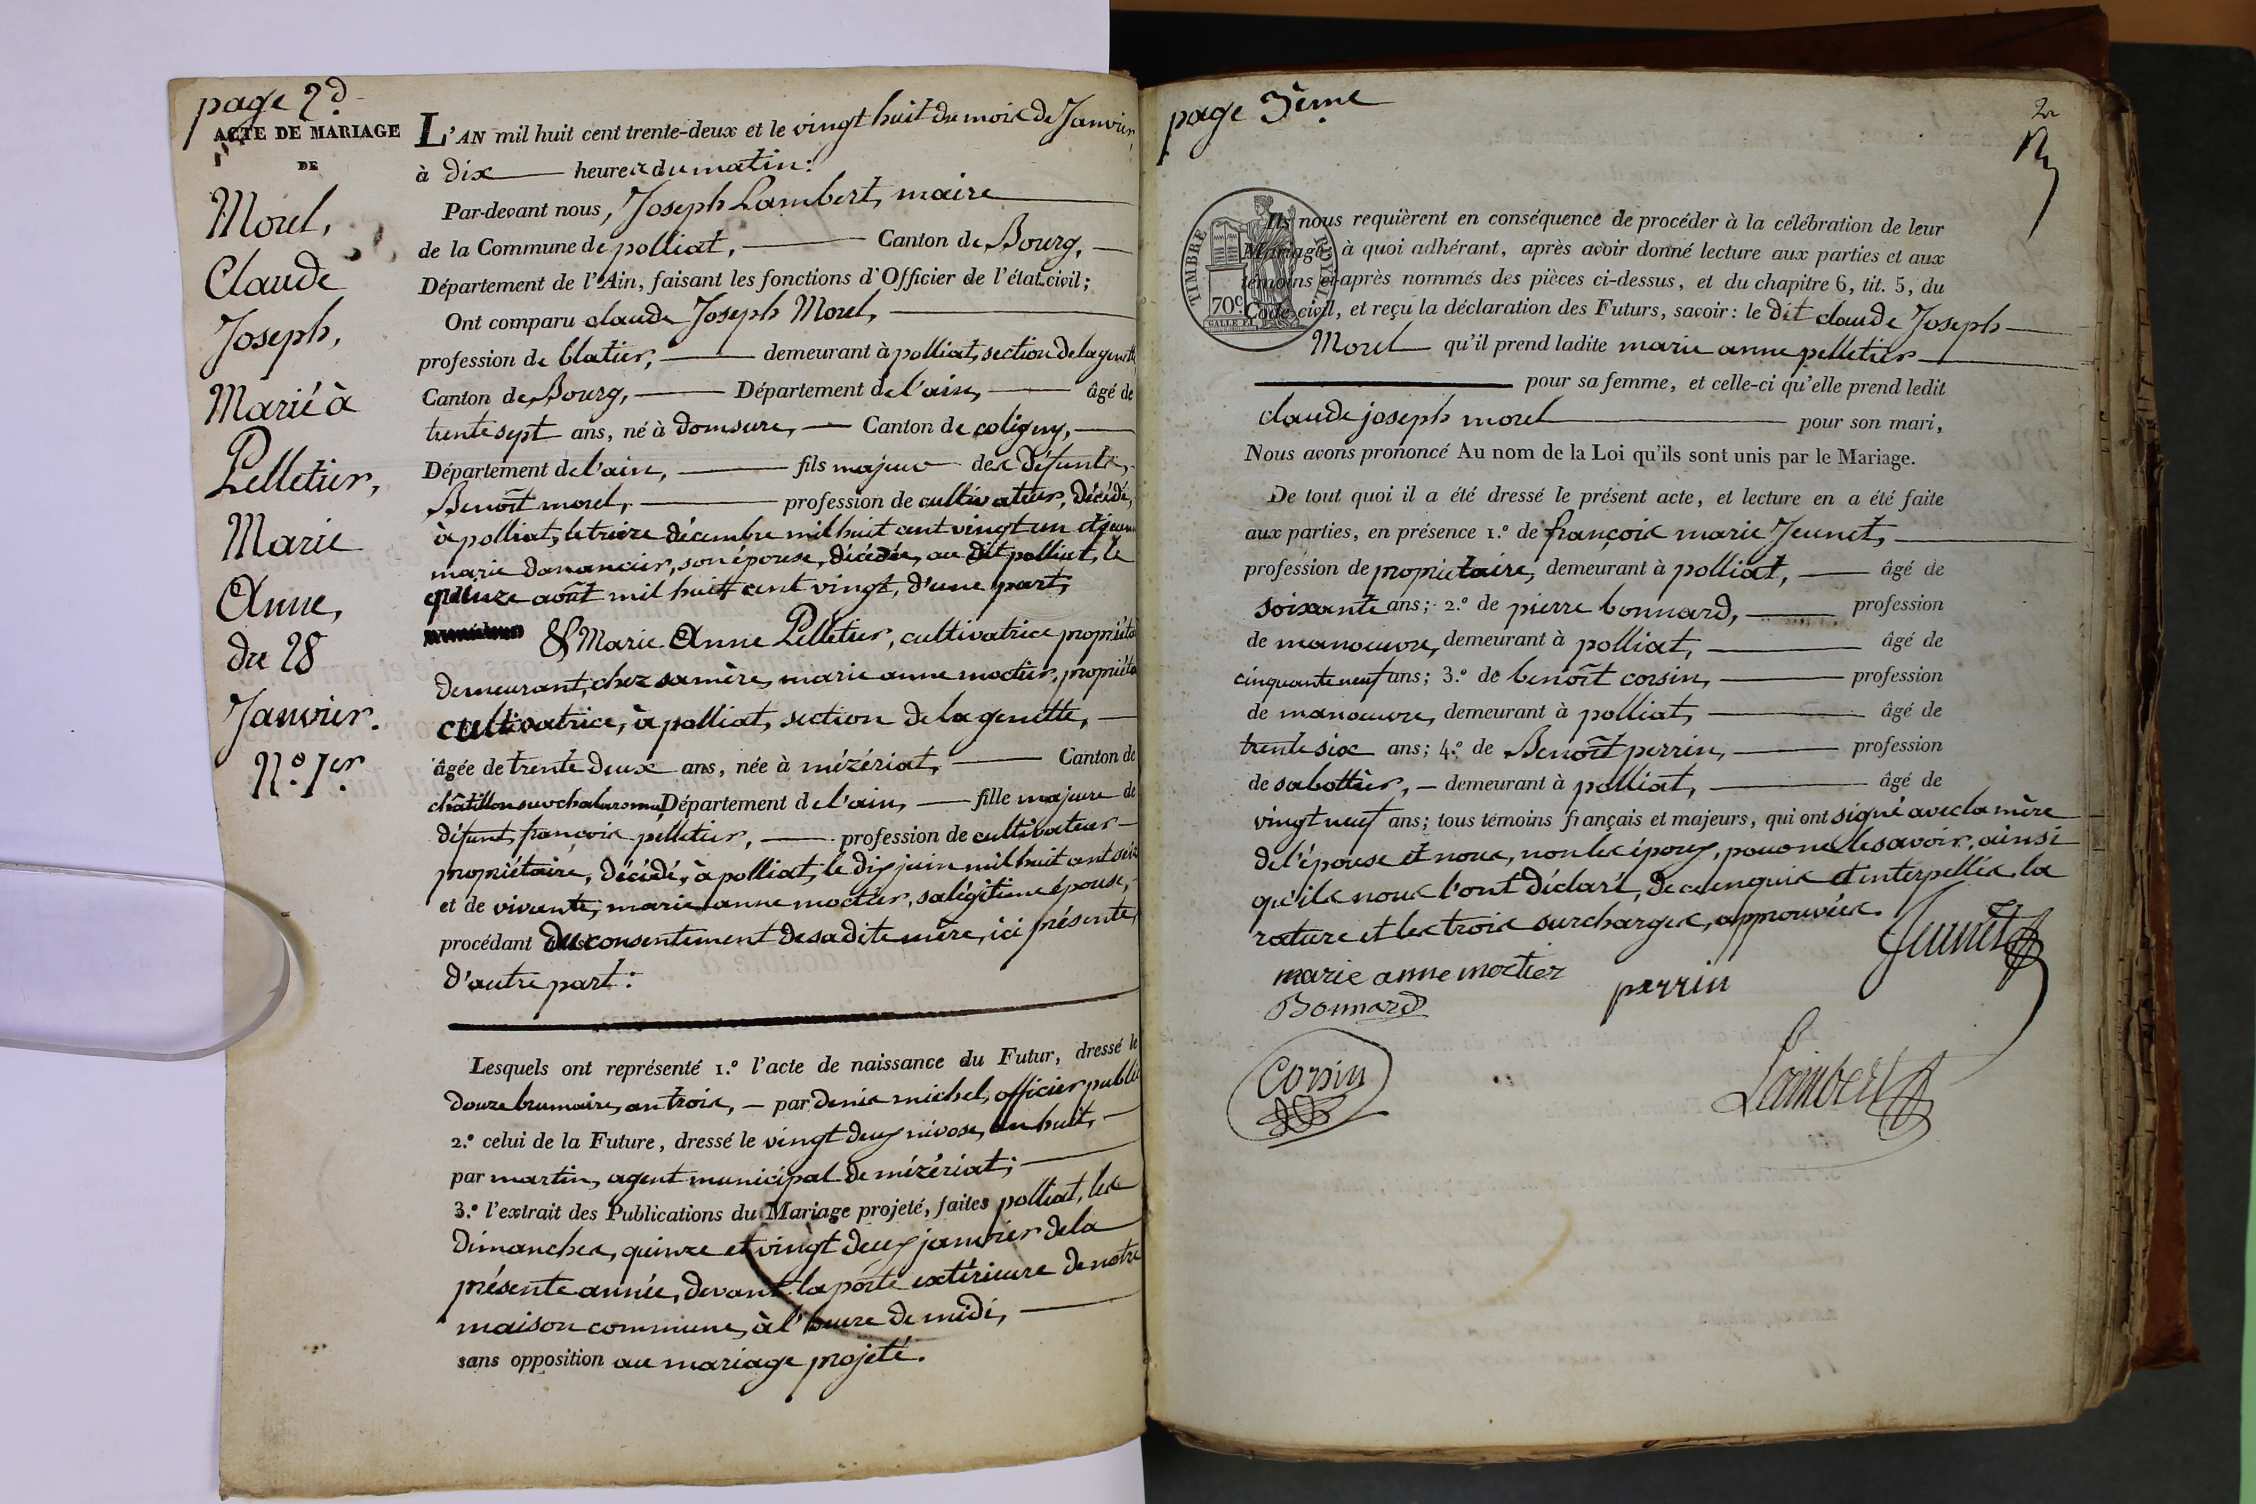 page 2.d
ACTE DE MARIAGE
DE
Morel,
Claude
Joseph,
Marié à
Pelletier,
Marie
Anne,
du 28
Janvier.
N.o 1.er
L'AN mil huit cent trente-deux et le vingt huit du mois de Janvier,
à dix heures du matin:
Par-devant nous, Joseph Lambert, maire
de la Commune de polliat, Canton de Bourg,
Département de l'Ain, faisant les fonctions d'Officier de l'état civil;
Ont comparu claude Joseph Morel,
profession de blatier, demeurant à polliat, section de la genette
Canton de Bourg, Département de l'ain, âgé de
trente sept ans, né à domsure, Canton de coligny,
Département de l'ain, fils majeur des défunts,
Benoît morel, profession de cultivateur, décédé,
à polliat, le treize décembre mil huit cent vingt un et jeanne
marie donancier, son épouse, décédée, au dit polliat, le
quinze août mil huit cent vingt, d'une part,
& Marie Anne Pelletier, cultivatrice propriéta
demeurant, chez sa mère, marie anne moctier, propriéta
cultivatrice, à polliat, section de la genette,
âgée de trente deux ans, née à mézériat, Canton de
châtillon sur chalaronne, Département de l'ain, fille majeure de
défunt, françois pelletier, profession de cultivateur
propriétaire, décédé, à polliat, le dix juin mil huit cent seize
et de vivante, marie anne moctier, sa légitime épouse,
procédant du consentement de sa dite mère, ici présente,
d'autre part:
Lesquels ont représenté 1.o l'acte de naissance du Futur, dressé le
douze brumaire, an trois, — par denis michel, officier public
2.o celui de la Future, dressé le vingt deux nivose, an huit,
par martin, agent municipal de mézériat;
3.o l'extrait des Publications du Mariage projeté, faites polliat, les
dimanches, quinze et vingt deux janvier de la
présente année, devant la porte extérieure de notre
maison commune, à l'heure de midi,
sans opposition au mariage projeté.
page 3.ème
2
TIMBRE ROYAL
70c.
Ils nous requièrent en conséquence de procéder à la célébration de leur
Mariage, à quoi adhérant, après avoir donné lecture aux parties et aux
témoins ci-après nommés des pièces ci-dessus, et du chapitre 6, tit. 5, du
Code civil, et reçu la déclaration des Futurs, savoir: le dit claude Joseph
Morel qu'il prend ladite marie anne pelletier
pour sa femme, et celle-ci qu'elle prend ledit
claude joseph morel pour son mari,
Nous avons prononcé Au nom de la Loi qu'ils sont unis par le Mariage.
De tout quoi il a été dressé le présent acte, et lecture en a été faite
aux parties, en présence 1.o de françois marie Jeunet,
profession de propriétaire, demeurant à polliat, âgé de
soixante ans; 2.o de pierre bonnard, profession
de manoeuvre, demeurant à polliat, âgé de
cinquante neuf ans; 3.o de benoît corsin, profession
de manoeuvre, demeurant à polliat, âgé de
trente six ans; 4.o de Benoît perrin, profession
de sabottier, — demeurant à polliat, âgé de
vingt neuf ans; tous témoins français et majeurs, qui ont signé avec la mère
de l'épouse et nous, non les époux, pour ne le savoir, ainsi
qu'ils nous l'ont déclaré, de ce enquis et interpellés. la
rature et les trois surcharges, approuvées.
Jeunet
marie anne moctier
perrin
Bonnard
Corsin
Lambert